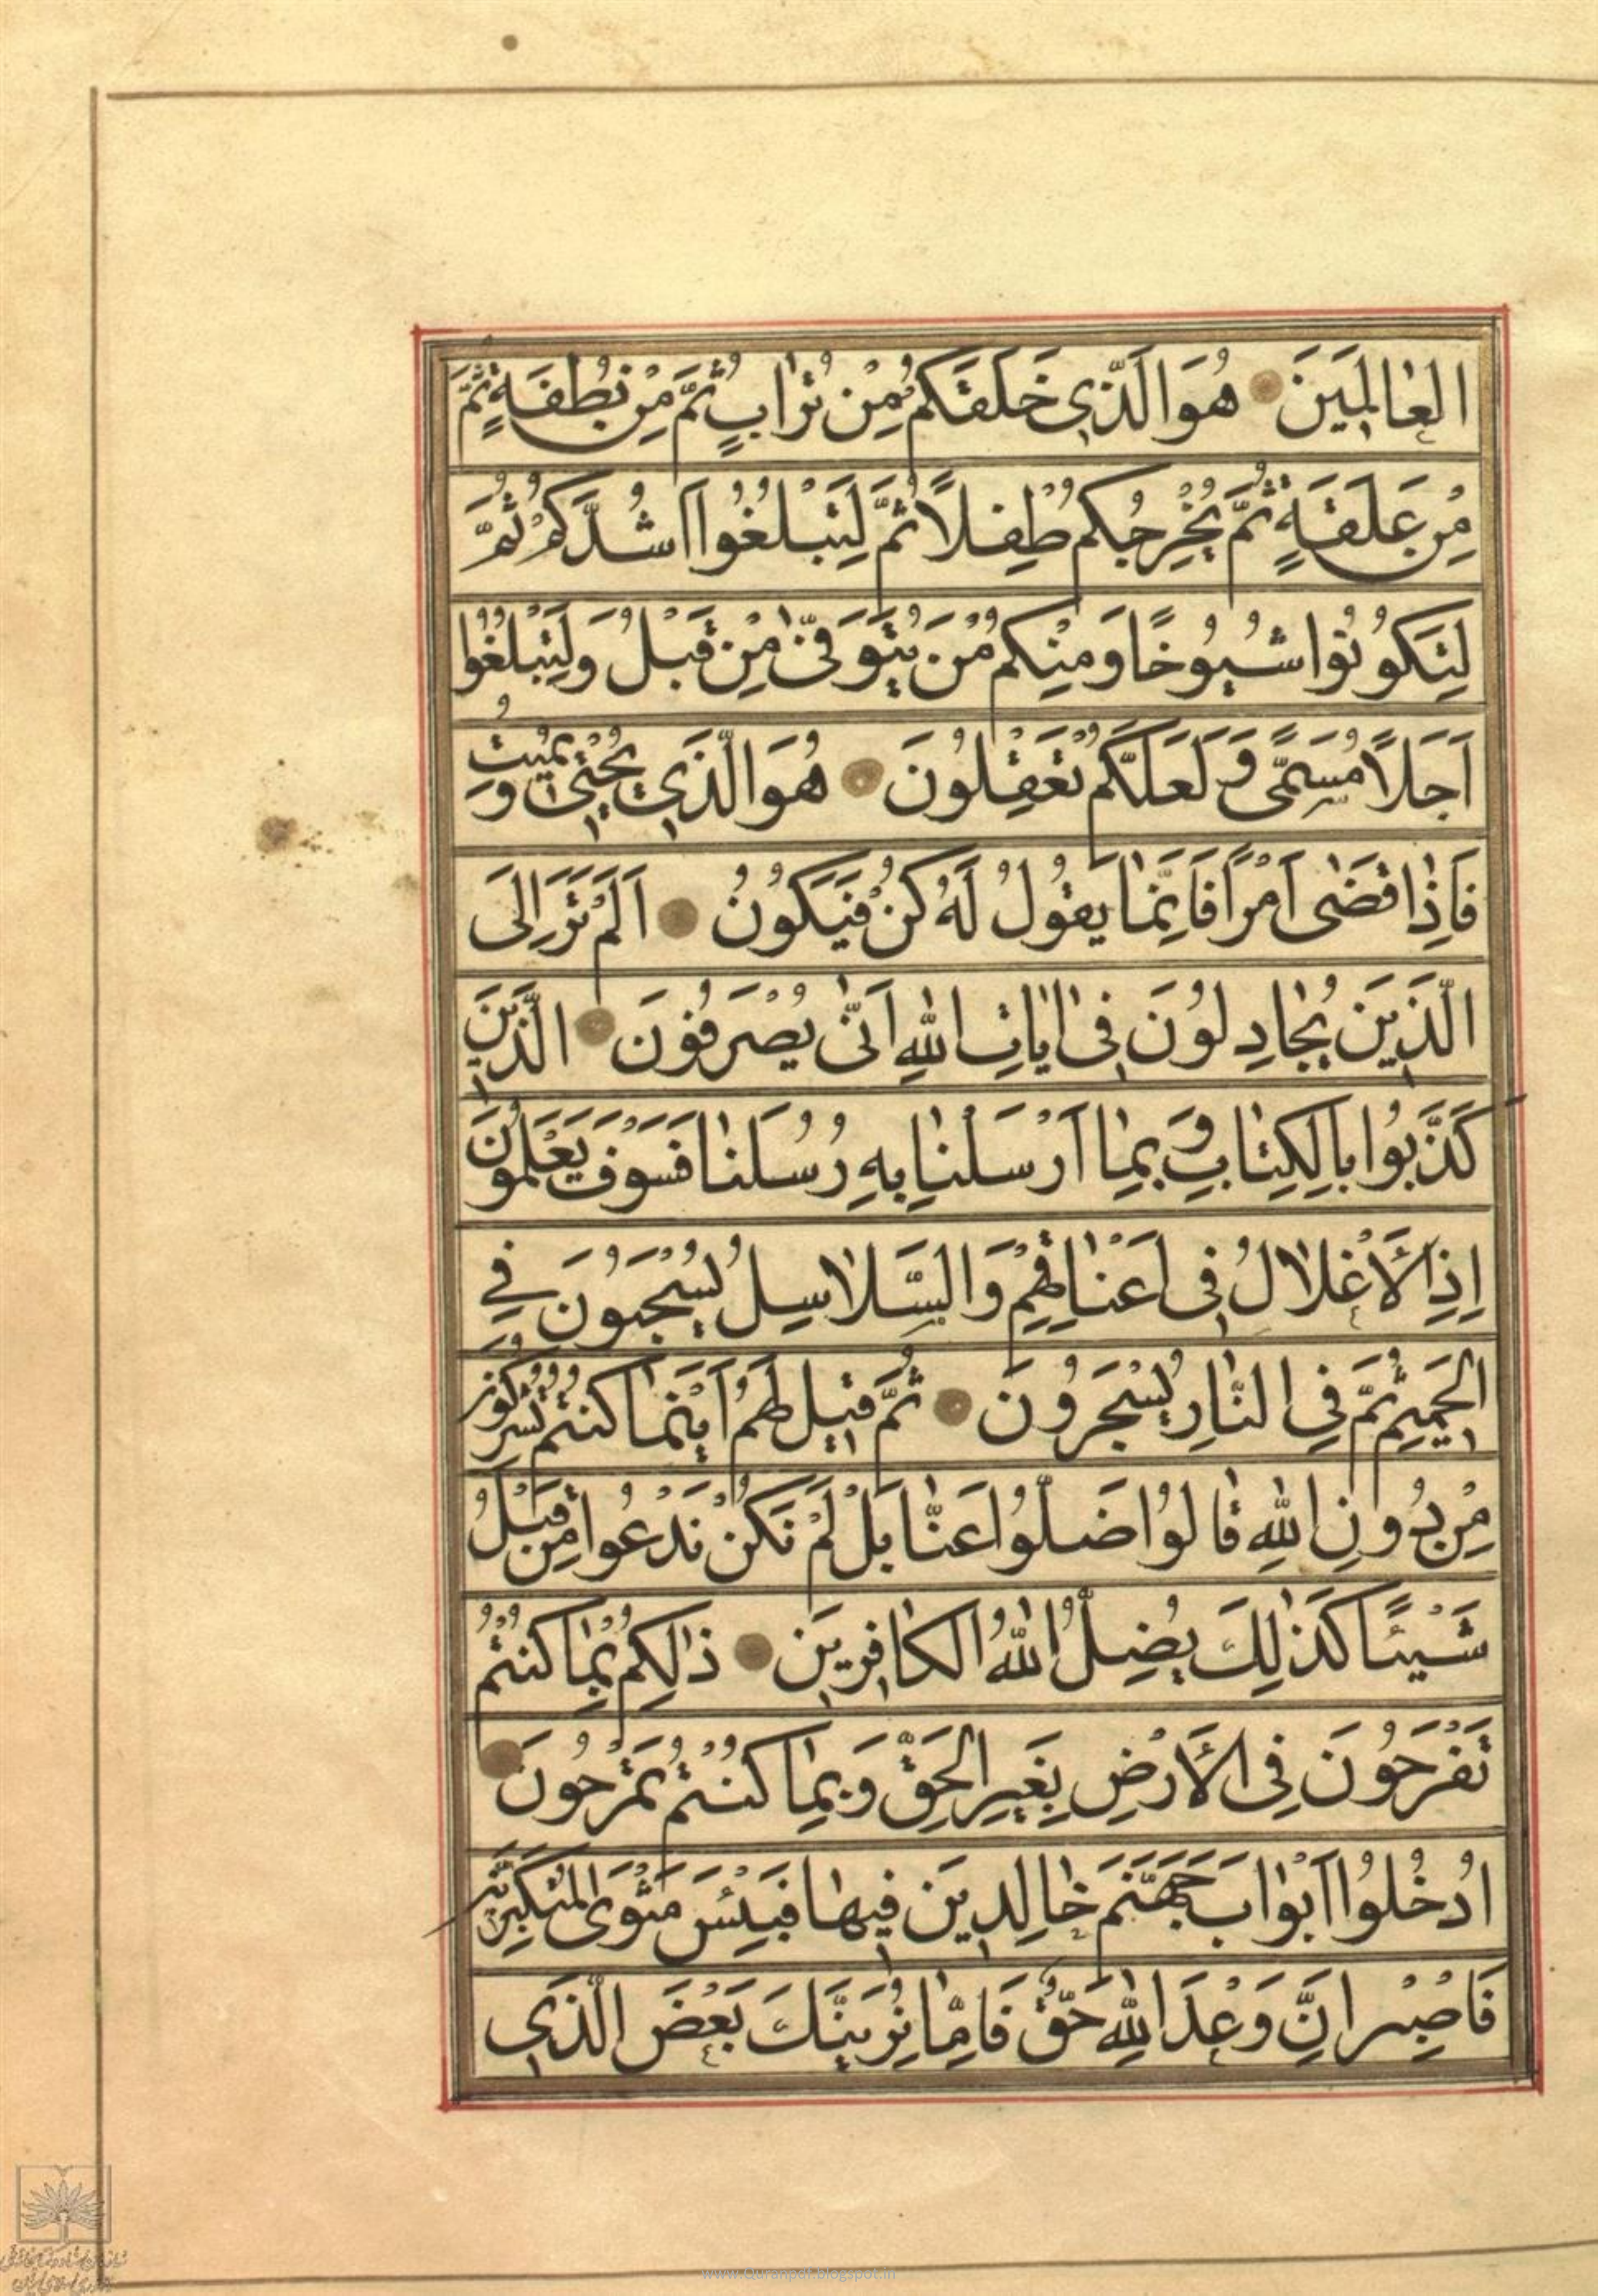 العٰالَمِينَ هُوَ الَّذِي خَلَقَكُمْ مِنْ تُرٰابٍ ثُمَّ مِنْ نُطْفَةٍ ثُمَّ
مِنْ عَلَقَةٍ ثُمَّ يُخْرِجُكُمْ طِفْلاً ثُمَّ لِتَبْلُغُوا اَشُدَّكُمْ ثُمَّ
لِتَكُونُوا شُيُوخًا وَمِنْكُمْ مَنْ يُتَوَفّٰى مِنْ قَبْلُ وَلِتَبْلُغُوا
اَجَلاً مُسَمًّى وَلَعَلَّكُمْ تَعْقِلُونَ هُوَ الَّذِي يُحْيِي وَيُمِيتُ
فَاِذٰا قَضٰى اَمْرًا فَاِنَّمٰا يَقُولُ لَهُ كُنْ فَيَكُونُ اَلَمْ تَرَ اِلَى
الَّذِينَ يُجٰادِلُونَ فِي اٰيٰاتِ اللهِ اَنّٰى يُصْرَفُونَ الَّذِينَ
كَذَّبُوا بِالكِتٰابِ وَبِمٰا اَرْسَلْنٰا بِهِ رُسُلَنٰا فَسَوْفَ يَعْلَمُونَ
اِذِ الْاَغْلٰالُ فِي اَعْنٰاقِهِمْ وَالسَّلٰاسِلُ يُسْحَبُونَ فِي
الحَمِيمِ ثُمَّ فِي النّٰارِ يُسْجَرُونَ ثُمَّ قِيلَ لَهُمْ اَيْنَمٰا كُنْتُمْ تُشْرِكُونَ
مِنْ دُونِ اللهِ قٰالُوا ضَلُّوا عَنّٰا بَلْ لَمْ نَكُنْ نَدْعُوا مِنْ قَبْلُ
شَيْئًا كَذٰلِكَ يُضِلُّ اللهُ الكٰافِرِينَ ذٰلِكُمْ بِمٰا كُنْتُمْ
تَفْرَحُونَ فِي الْاَرْضِ بِغَيْرِ الحَقِّ وَبِمٰا كُنْتُمْ تَمْرَحُونَ
ادْخُلُوا اَبْوٰابَ جَهَنَّمَ خٰالِدِينَ فِيهٰا فَبِئْسَ مَثْوَى المُتَكَبِّرِينَ
فَاصْبِرْ اِنَّ وَعْدَ اللهِ حَقٌّ فَاِمّٰا نُرِيَنَّكَ بَعْضَ الَّذِي
www.Quranpdf.blogspot.in